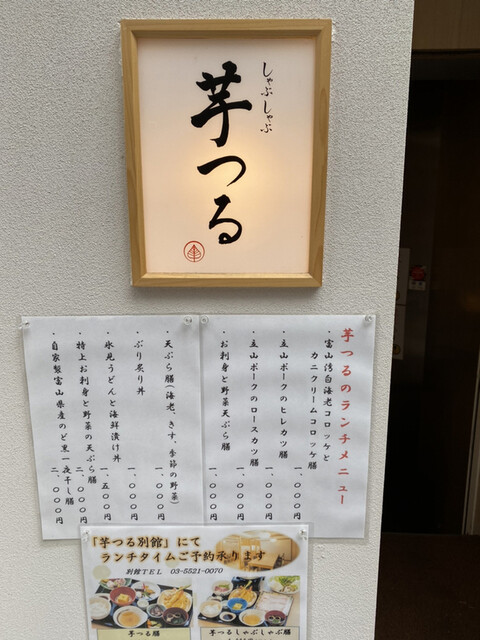 しゃぶしゃぶ
芋つる
芋つるのランチメニュー
・富山湾白海老コロッケと
カニクリームコロッケ膳
一、〇〇〇円
・立山ポークのヒレカツ膳
一、〇〇〇円
・立山ポークのロースカツ膳
一、〇〇〇円
・お刺身と野菜天ぷら膳
一、〇〇〇円
・天ぷら膳(海老、きす、季節の野菜)
一、〇〇〇円
・ぶり炙り丼
一、〇〇〇円
・氷見うどんと海鮮漬け丼
一、五〇〇円
・特上お刺身と野菜の天ぷら膳
二、〇〇〇円
・自家製富山県産のど黒一夜干し膳
二、〇〇〇円
「芋つる別館」にて
ランチタイムご予約承ります
別館TEL 03-5521-0070
芋つる膳
芋つるしゃぶしゃぶ膳